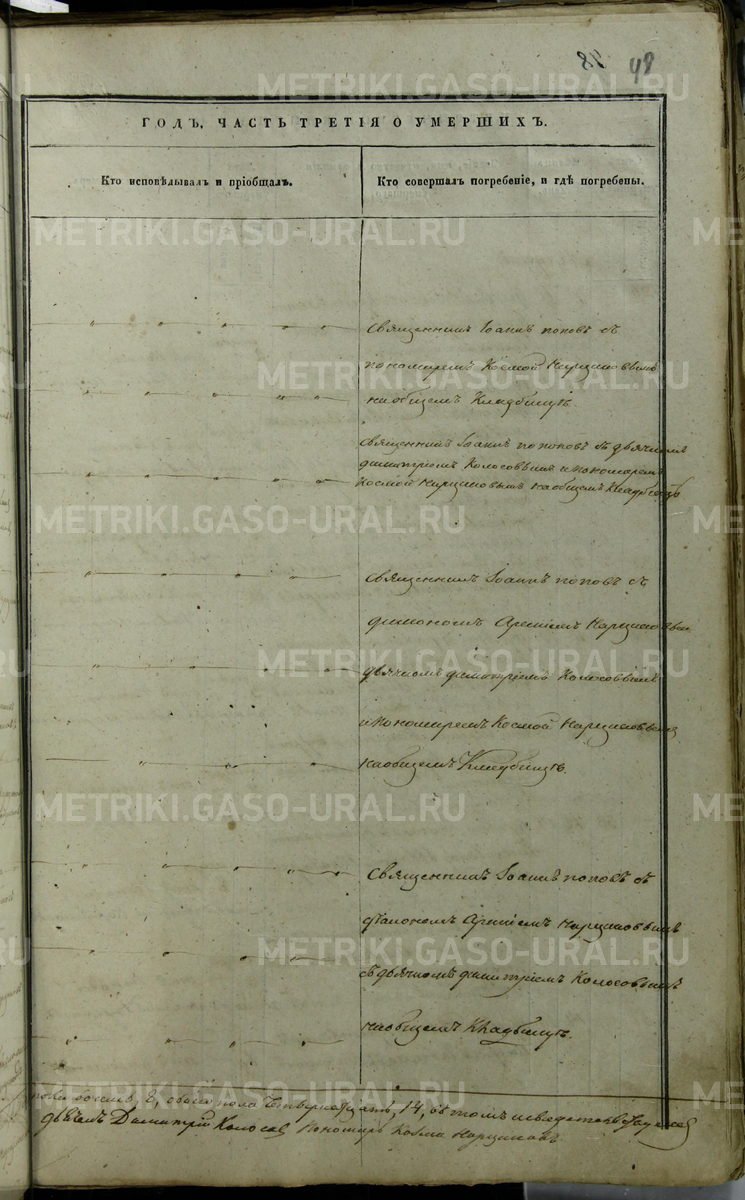 82 48
ГОДЪ, ЧАСТЬ ТРЕТІЯ О УМЕРШИХЪ.
Кто исповѣдывалъ и пріобщалъ.
Кто совершалъ погребеніе, и гдѣ погребены.
Священникъ Іоаннъ поповъ съ
пономаремъ Космой Нарциссовымъ
на общемъ Кладбищѣ.
Священникъ Іоаннъ поповъ съ дьячкомъ
димитріемъ Колосовымъ и пономаремъ
Космой Нарциссовымъ на общемъ Кладбищѣ
Священникъ Іоаннъ поповъ съ
діакономъ Арсеніемъ
дьячкомъ димитріемъ Колосовымъ
и пономаремъ Космой
на общемъ Кладбищѣ.
Священникъ Іоаннъ поповъ съ
діакономъ Арсеніемъ
съ дьячкомъ димитріемъ Колосовымъ
на общемъ Кладбищѣ.
пола восемь, 8, обоего пола Четырнадцать, 14, въ томъ
Димитрій Колосовъ Пономарь Козма
METRIKI.GASO-URAL.RU